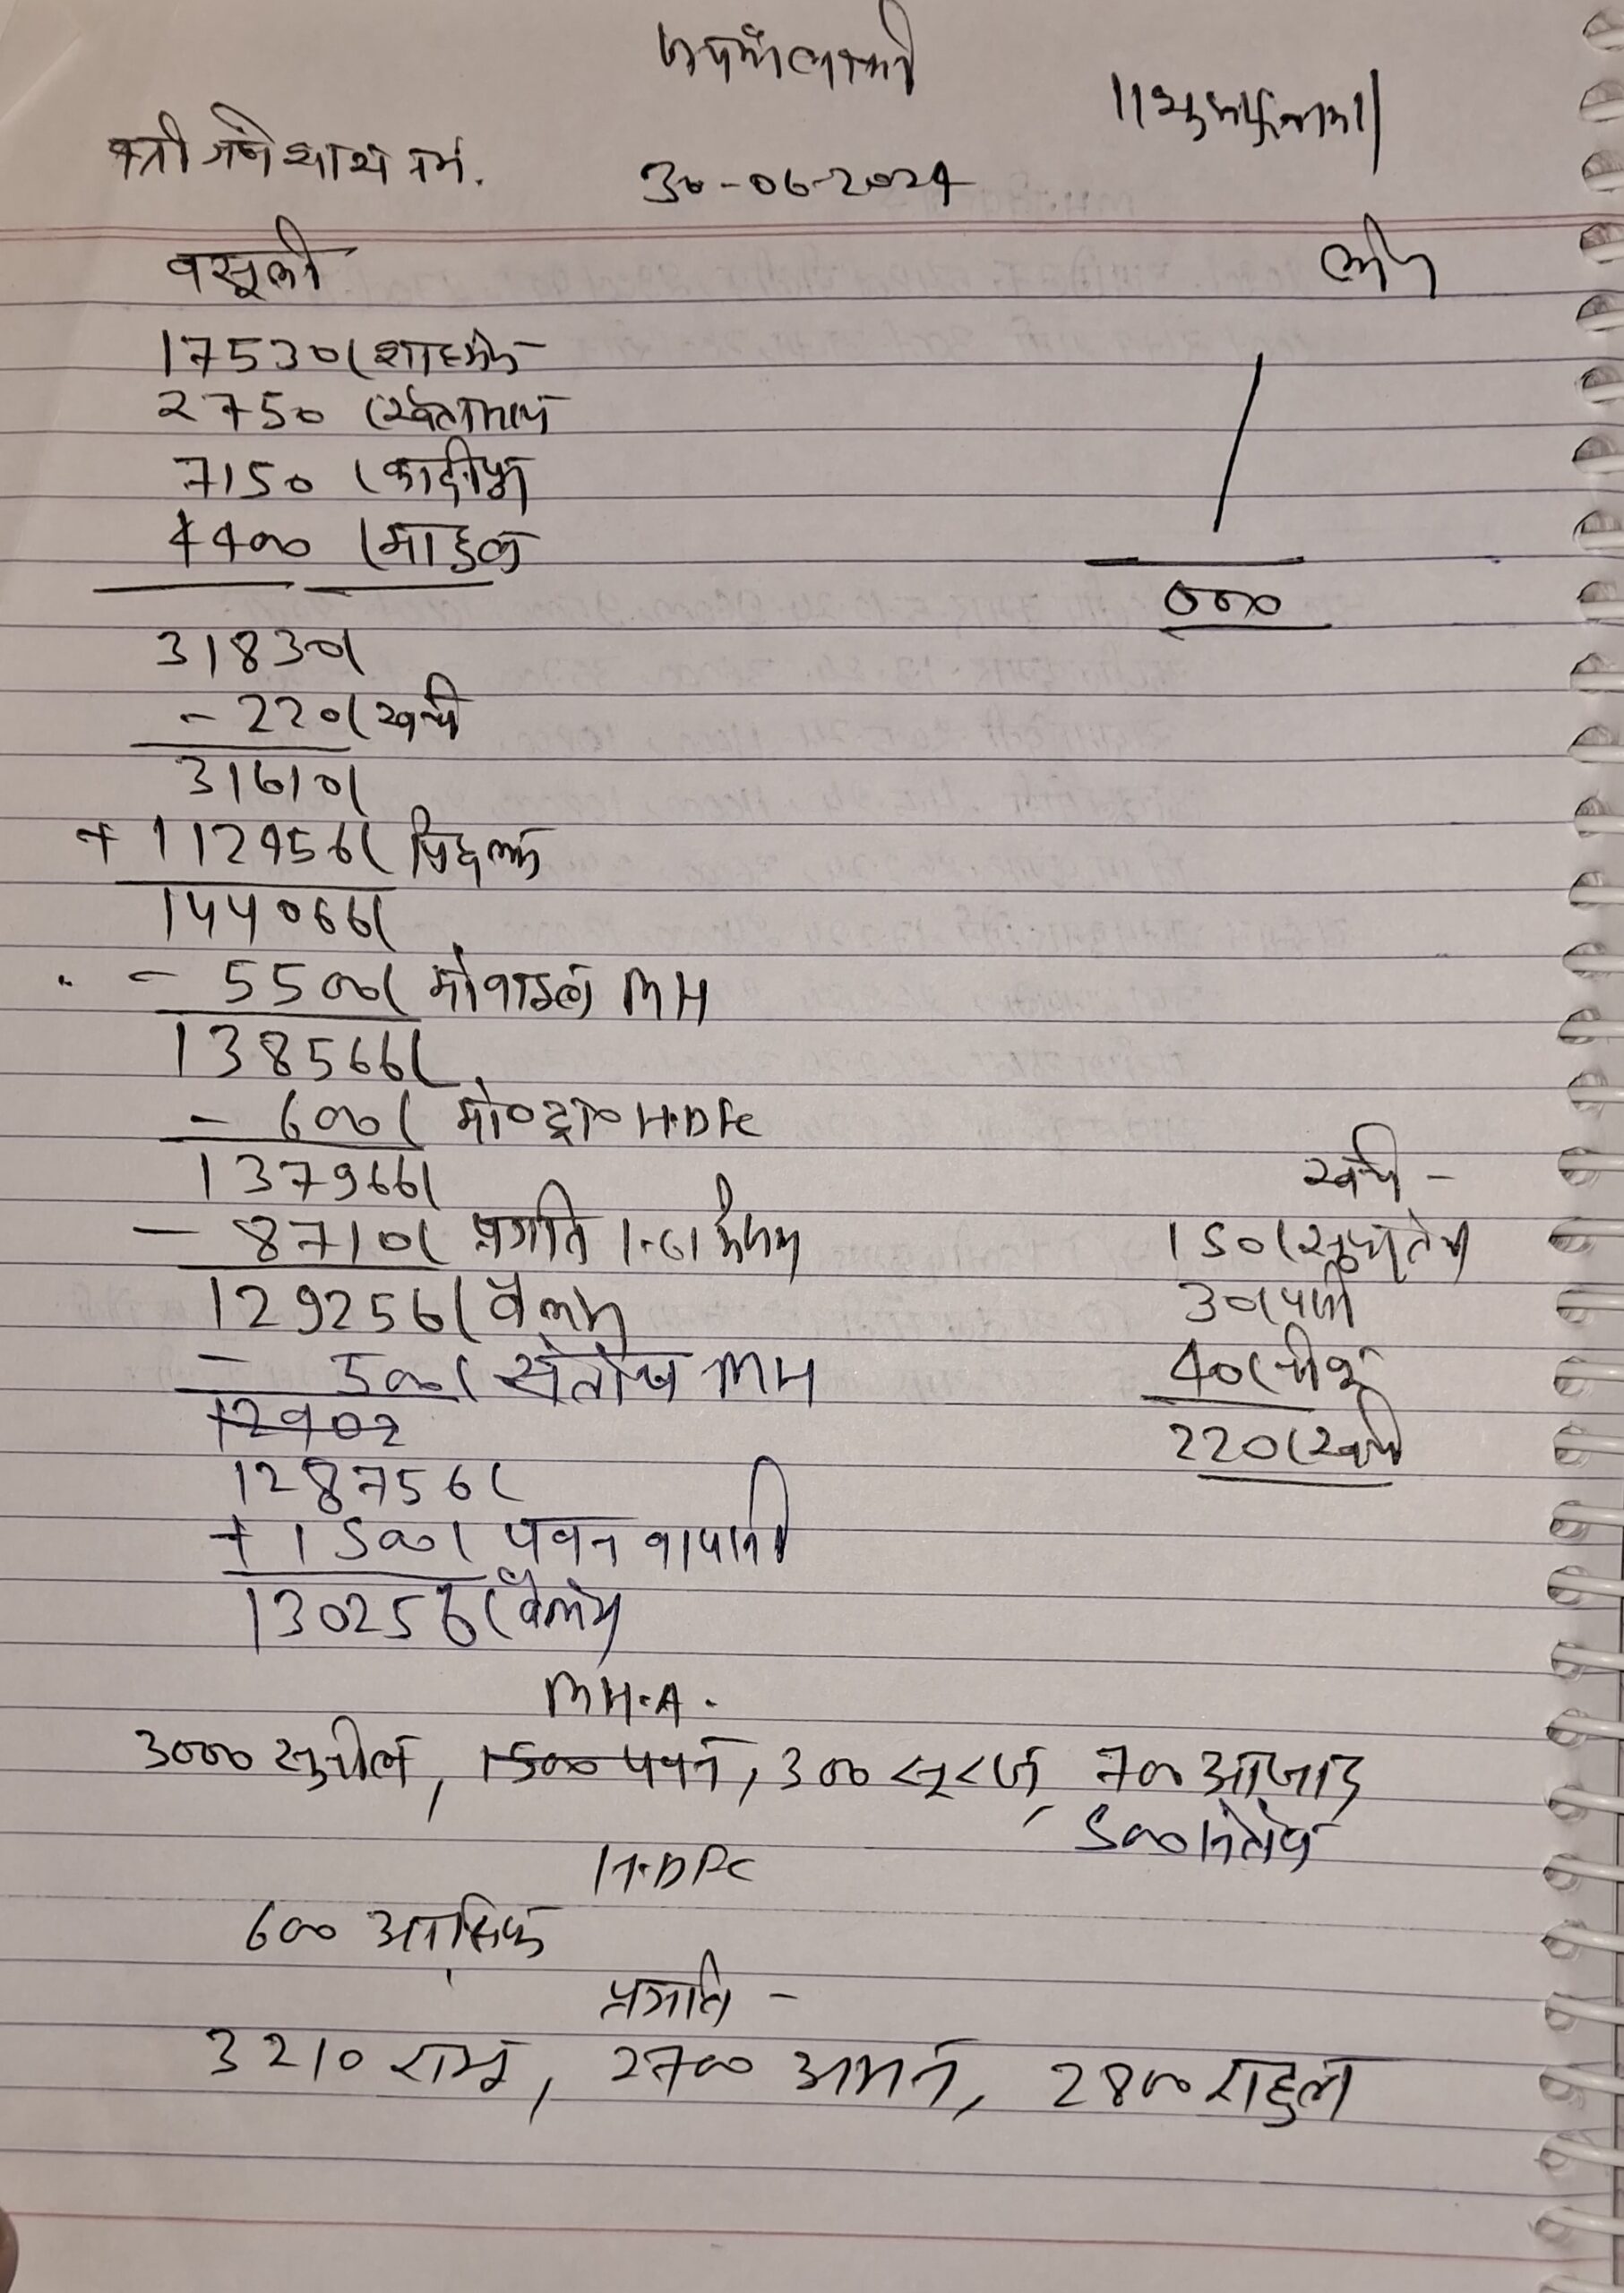 श्री गणेशाय नमः
30-06-2024
वसूली
लोन
17530/
2750/
7150/
4400/
000
31830/
- 220/ खर्चा
31610/
+ 112456/ पिछला
144066/
- 5500/ मोबाइल MH
138566/
- 600/ मो० ट्रा० H.DFC
137966/
- 8710/ प्रगति
129256/ बैलेंस
- 500/ संतोष MH
12902
128756/
+ 1500/ पवन वापसी
130256/ बैलेंस
खर्चा -
150/
30/ पानी
40/
220/ खर्चा
MH.A.
3000 सुनील, 1500 पवन, 300 सूरज, 700 आजाद
500
H.DFC
600
प्रगति -
3210 रामू, 2700 अमन, 2800 राहुल